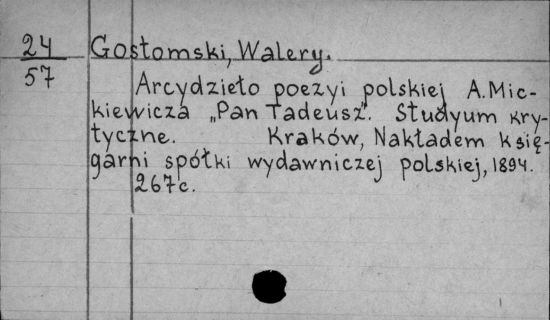 24
57
Gostomski, Walery.
Arcydzieło poezyi polskiej A. Mic-
kiewicza „Pan Tadeusz". Studyum kry-
tyczne. Kraków, Nakładem księ-
garni spółki wydawniczej polskiej, 1894.
267 c.